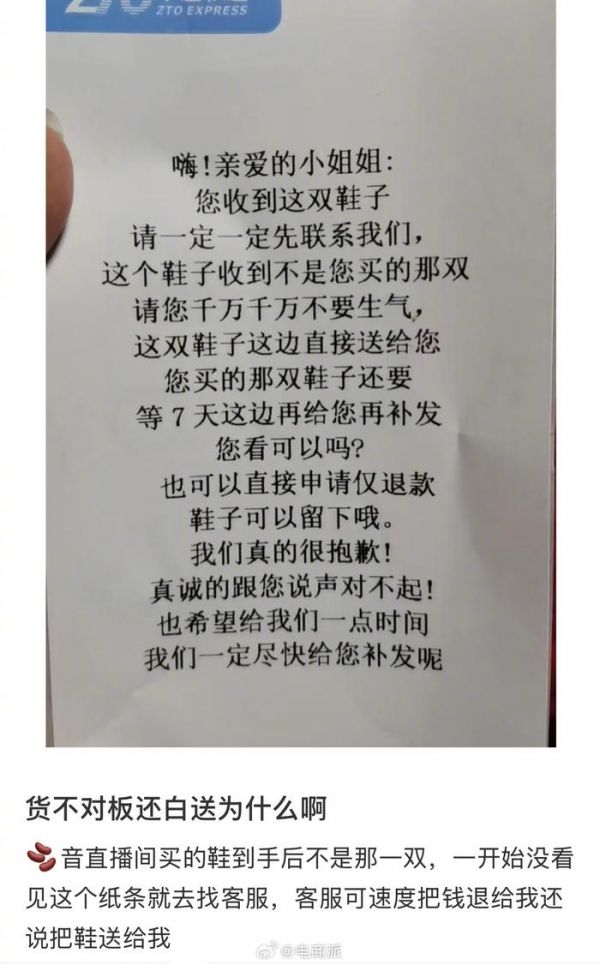 ZTO EXPRESS
嗨!亲爱的小姐姐:
您收到这双鞋子
请一定一定先联系我们,
这个鞋子收到不是您买的那双
请您千万千万不要生气,
这双鞋子这边直接送给您
您买的那双鞋子还要
等7天这边再给您再补发
您看可以吗?
也可以直接申请仅退款
鞋子可以留下哦。
我们真的很抱歉!
真诚的跟您说声对不起!
也希望给我们一点时间
我们一定尽快给您补发呢
货不对板还白送为什么啊
音直播间买的鞋到手后不是那一双，一开始没看
见这个纸条就去找客服，客服可速度把钱退给我还
说把鞋送给我
@电商派